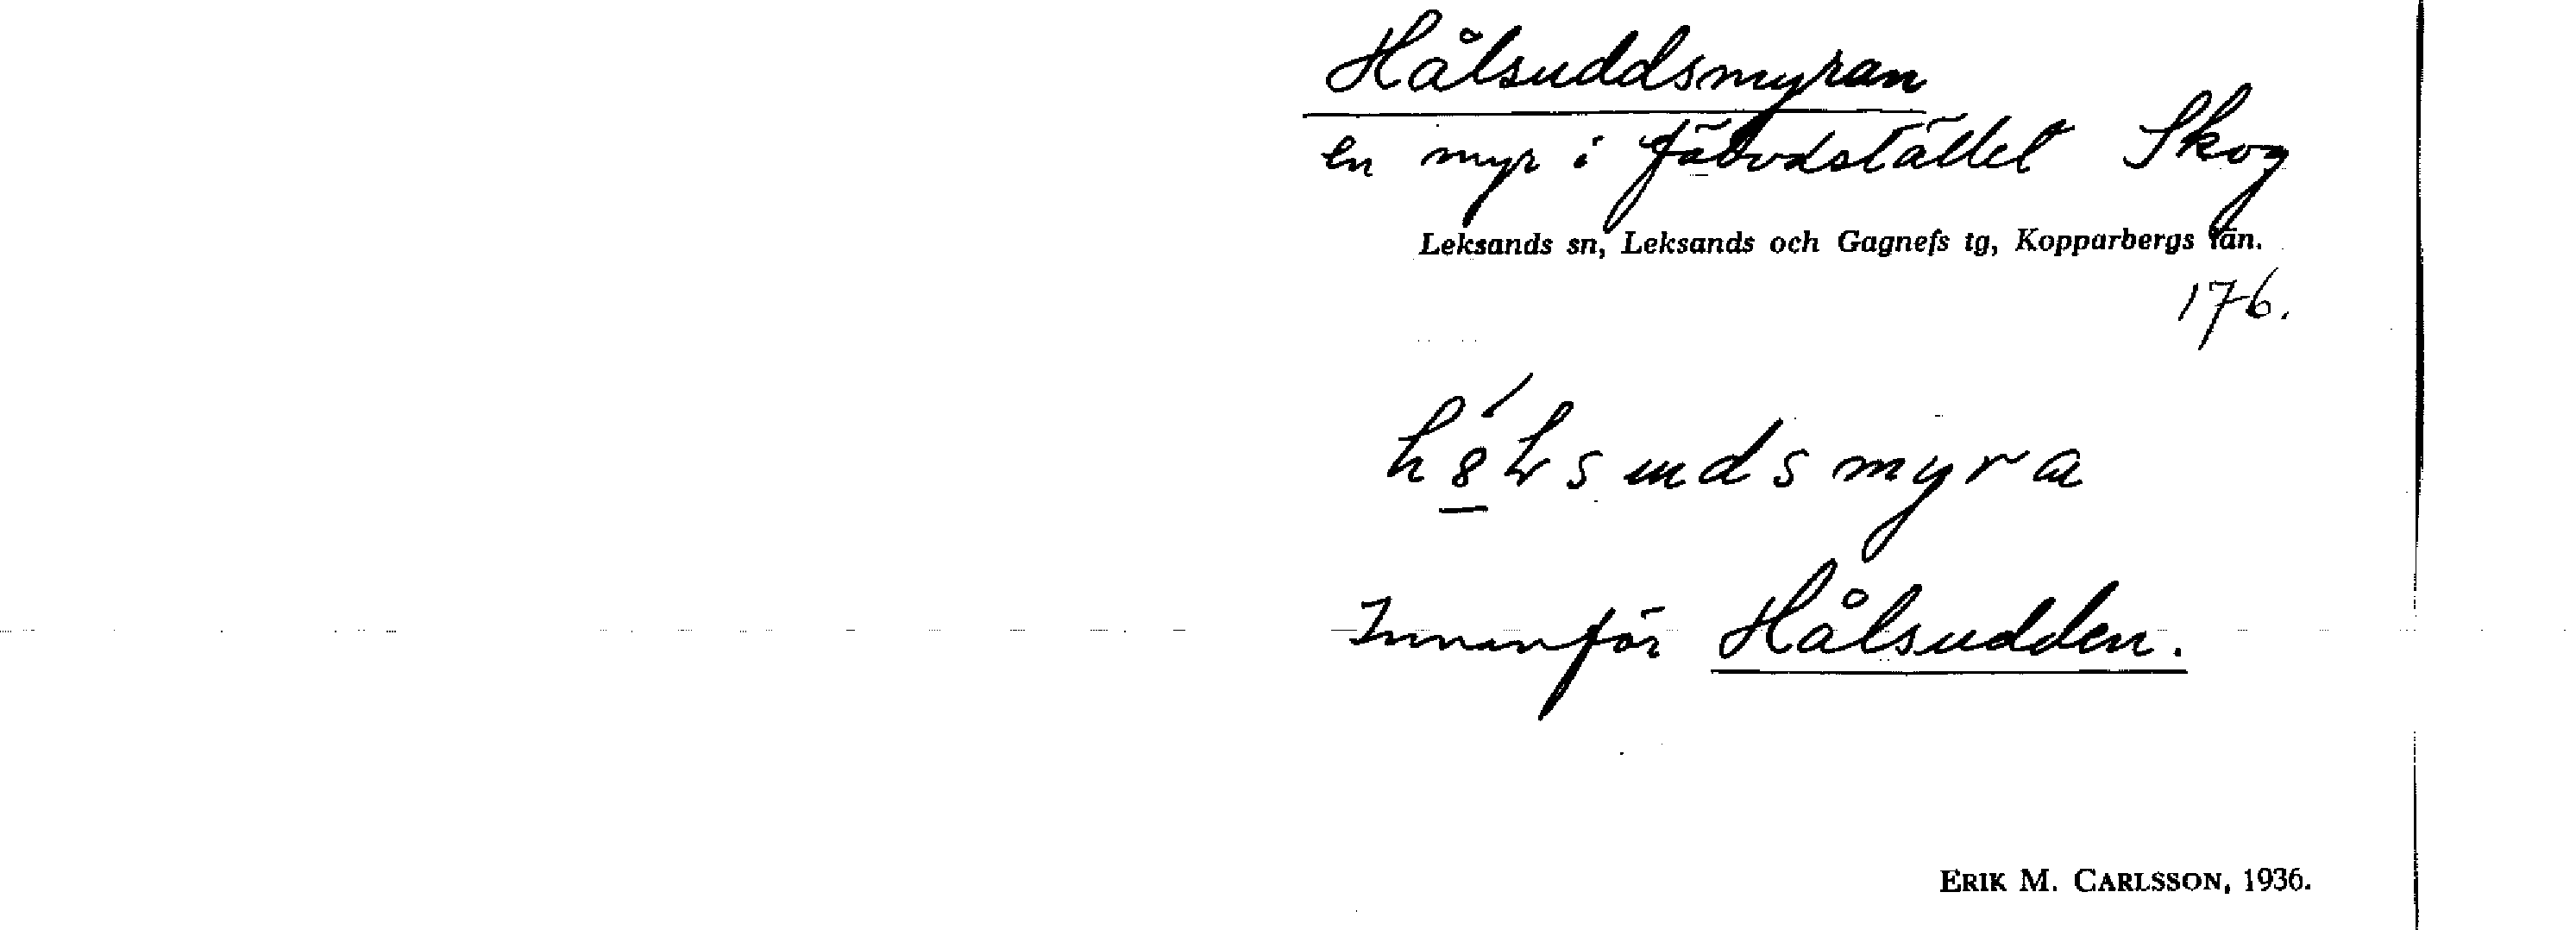 Hålsuddsmyran
en myr i fäbodstället Skog
Leksands sn, Leksands och Gagnefs tg, Kopparbergs län.
176.
Innanför Hålsudden.
ERIK M. CARLSSON, 1936.